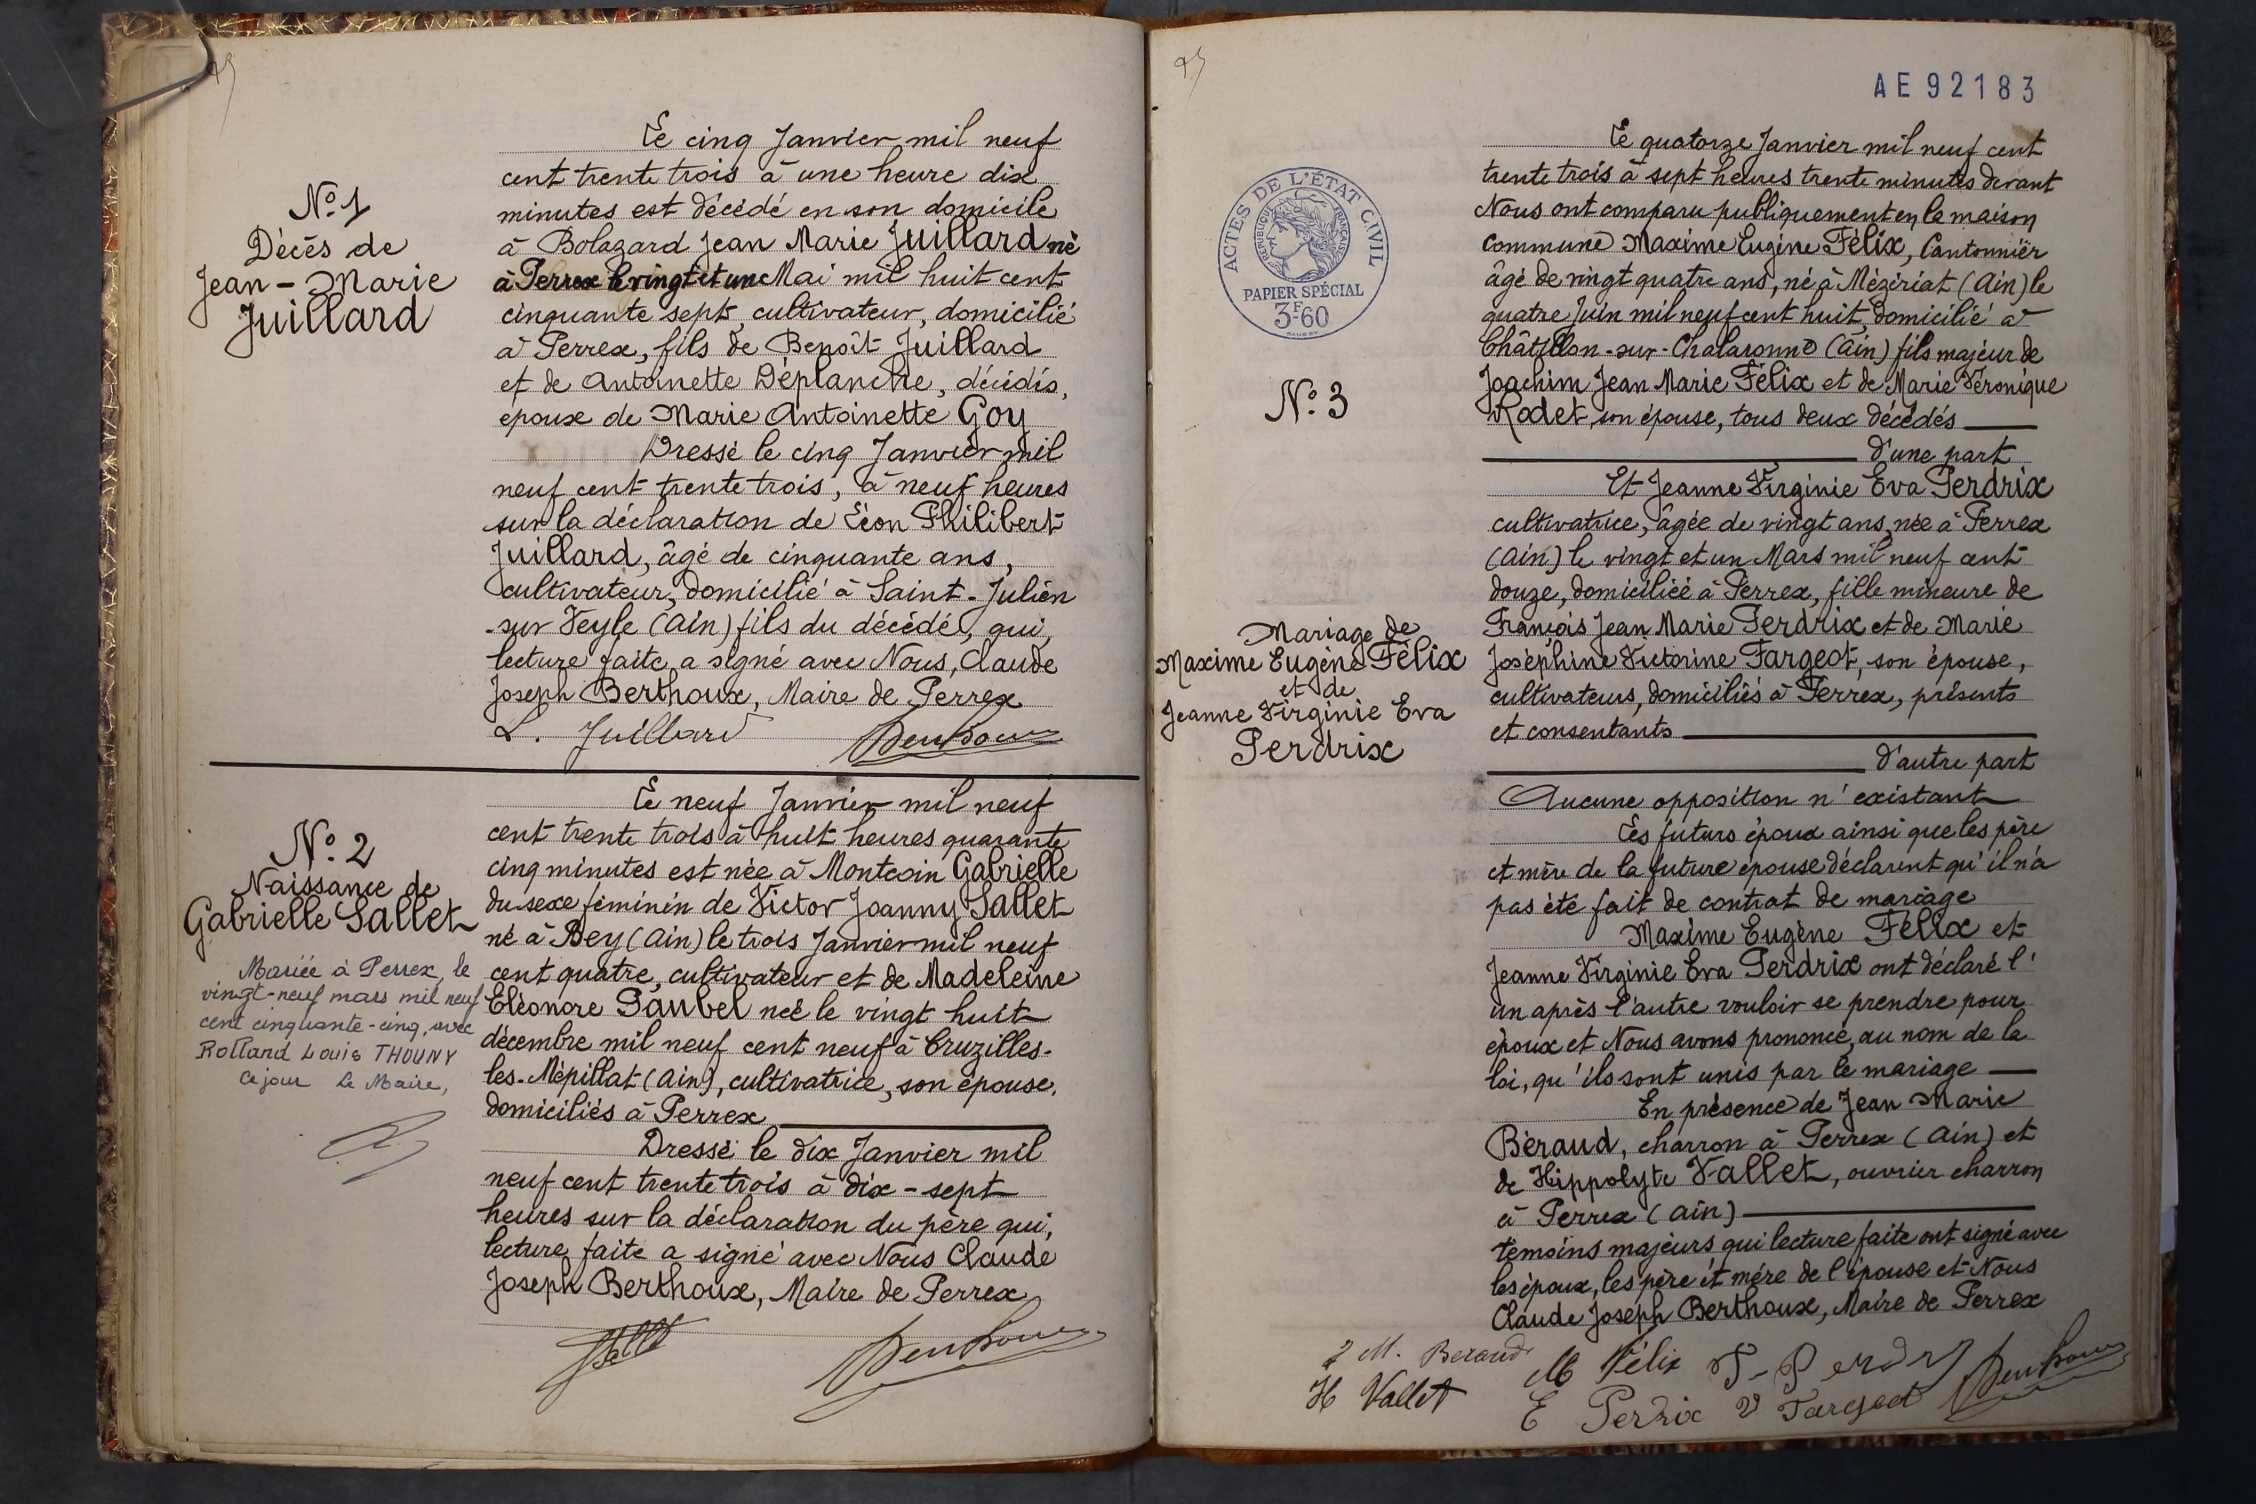 N° 1
Décès de
Jean-Marie
Juillard
Le cinq Janvier mil neuf
cent trente trois à une heure dix
minutes est décédé en son domicile
à Bolazard Jean Marie Juillard né
à Perrex le vingt et un Mai mil huit cent
cinquante sept, cultivateur, domicilié
à Perrex, fils de Benoît Juillard
et de Antoinette Déplanche, décédés,
époux de Marie Antoinette Goy
Dressé le cinq Janvier mil
neuf cent trente trois, à neuf heures
sur la déclaration de Léon Philibert
Juillard, âgé de cinquante ans,
cultivateur, domicilié à Saint-Julien
-sur Veyle (Ain) fils du décédé, qui,
lecture faite, a signé avec Nous, Claude
Joseph Berthoux, Maire de Perrex
L. Juillard Berthoux
N° 2
Naissance de
Gabrielle Sallet
Mariée à Perrex, le
vingt-neuf mars mil neuf
cent cinquante-cinq, avec
Rolland Louis THOUNY
Ce jour Le Maire,
Le neuf Janvier mil neuf
cent trente trois à huit heures quarante
cinq minutes est née à Montcoin Gabrielle
du sexe féminin de Victor Joanny Sallet
né à Bey (Ain) le trois Janvier mil neuf
cent quatre, cultivateur et de Madeleine
Eléonore Paubel née le vingt huit
décembre mil neuf cent neuf à Cruzilles-
les-Mépillat (Ain), cultivatrice, son épouse,
domiciliés à Perrex
Dressé le dix Janvier mil
neuf cent trente trois à dix-sept
heures sur la déclaration du père qui,
lecture faite a signé avec Nous Claude
Joseph Berthoux, Maire de Perrex
Sallet Berthoux
AE 92183
ACTES DE L'ÉTAT CIVIL
RÉPUBLIQUE FRANÇAISE
PAPIER SPÉCIAL
3F-60
N° 3
Mariage de
Maxime Eugène Félix
et de
Jeanne Virginie Eva
Perdrix
Le quatorze Janvier mil neuf cent
trente trois à sept heures trente minutes devant
Nous ont comparu publiquement en la maison
commune Maxime Eugène Félix, Cantonnier
âgé de vingt quatre ans, né à Mézériat (Ain) le
quatre Juin mil neuf cent huit, domicilié à
Châtillon-sur-Chalaronne (Ain) fils majeur de
Joachim Jean Marie Félix et de Marie Véronique
Rodet, son épouse, tous deux décédés
d'une part
Et Jeanne Virginie Eva Perdrix
cultivatrice, âgée de vingt ans, née à Perrex
(Ain) le vingt et un Mars mil neuf cent
douze, domiciliée à Perrex, fille mineure de
François Jean Marie Perdrix et de Marie
Joséphine Victorine Fargeot, son épouse,
cultivateurs, domiciliés à Perrex, présents
et consentants
d'autre part
Aucune opposition n'existant
Les futurs époux ainsi que les père
et mère de la future épouse déclarent qu'il n'a
pas été fait de contrat de mariage
Maxime Eugène Félix et
Jeanne Virginie Eva Perdrix ont déclaré l'
un après l'autre vouloir se prendre pour
époux et Nous avons prononcé, au nom de la
loi, qu'ils sont unis par le mariage
En présence de Jean Marie
Béraud, charron à Perrex (Ain) et
de Hippolyte Vallet, ouvrier charron
à Perrex (Ain)
témoins majeurs qui lecture faite ont signé avec
les époux, les père et mère de l'épouse et Nous
Claude Joseph Berthoux, Maire de Perrex
J M. Beraud M Félix Berthoux
H Vallet E Perdrix V Fargeot